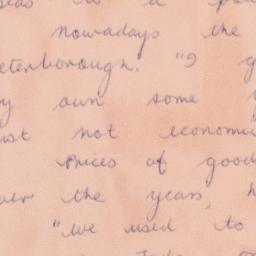 nowadays the
eterborough. "I g
own some
ust not economi
prices of good
over the years, h
"we used to